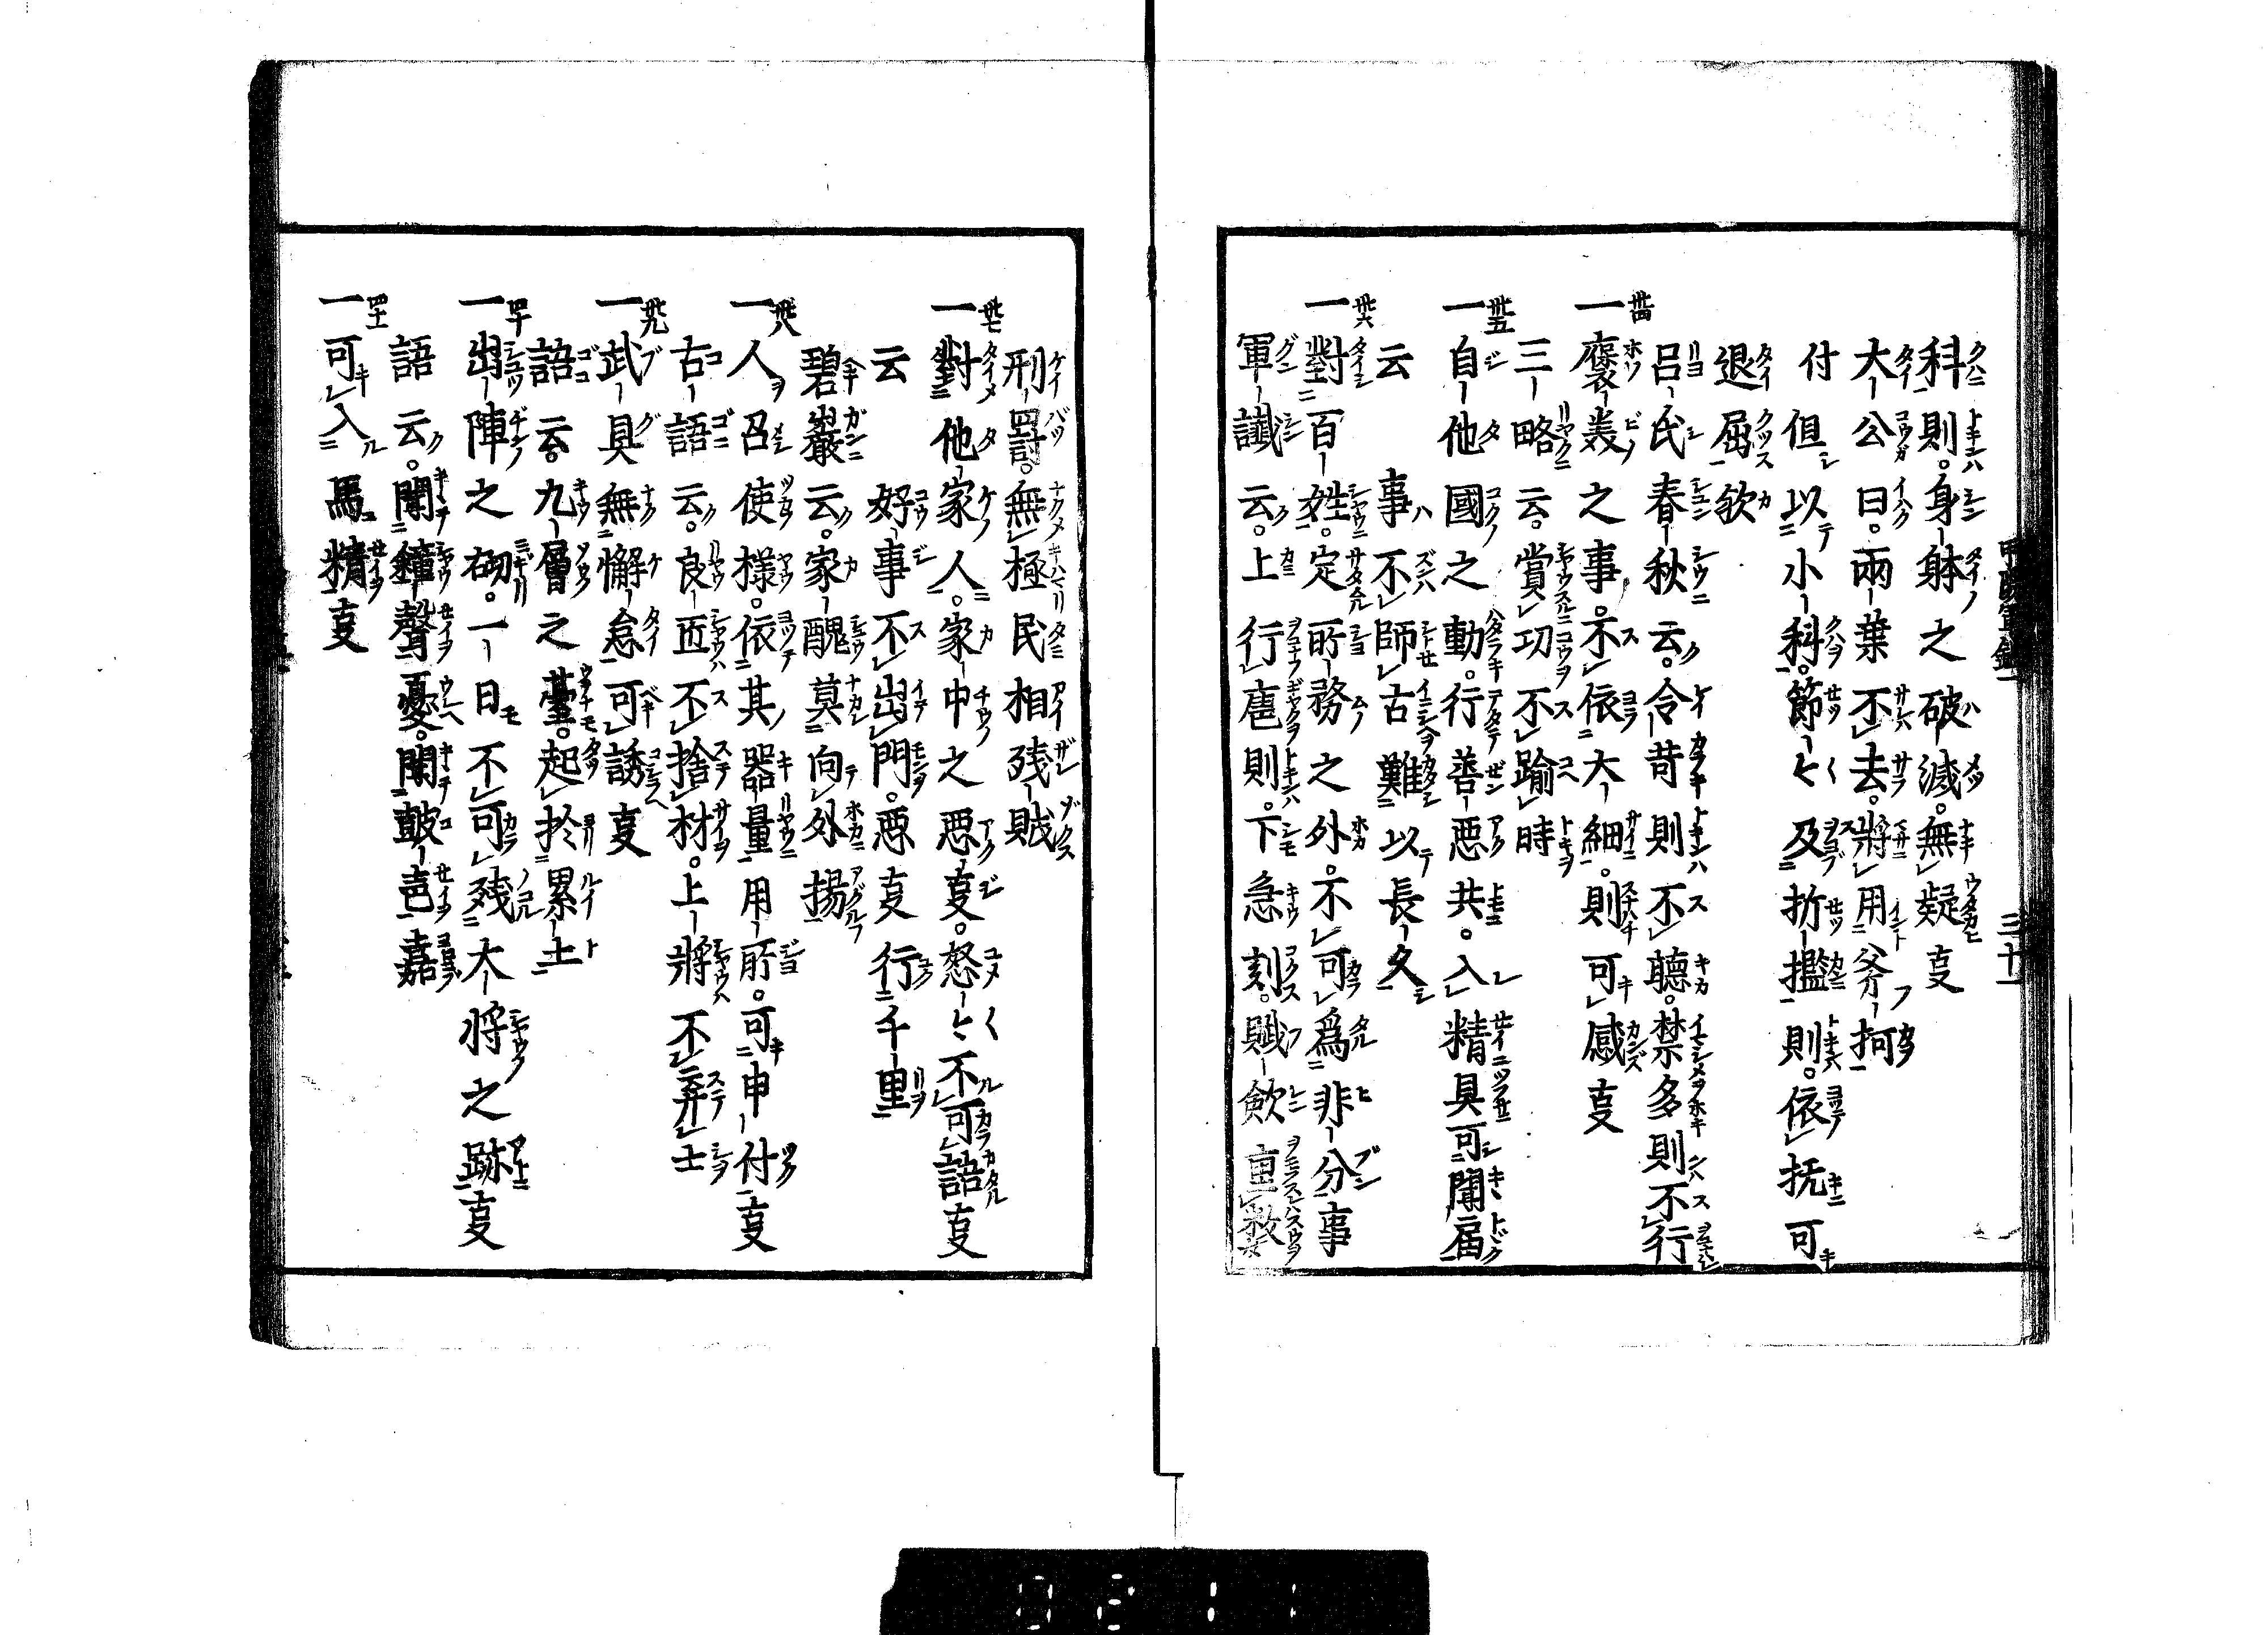 科則。身躰之破滅。無疑叓
大公曰。兩葉不去。將用斧柯
付但以小科。節〻及折檻則。依抚可
退屈欤
呂氏春秋云。令苛則不聴。禁多則不行
一 卅四 褒美之事。不依大細。則可感叓
三略云。賞功不踰時
一 卅五 自他國之動。行善悪共。入精具可聞届
云 事不師古難以長久
一 卅六 對百姓。定所務之外。不可爲非分事
軍讖云。上行虐則。下急刻。賦斂重数
甲陽軍鑑一 三十一
刑罸。無極民相残賊
一 卅七 對他家人。家中之悪叓。怒〻不可語叓
云 好事不出門。悪叓行千里
碧巖云。家醜莫向外揚
一 卅八 人召使様。依其器量用所。可申付叓
古語云。良匠不捨材。上將不弃士
一 卅九 武具無懈怠可誘叓
語云。九層之臺。起於累土
一 四十 出陣之砌。一日不可残大将之跡叓
語云。聞鐘聲憂。聞鼓音嘉
一 四十一 可入馬精叓